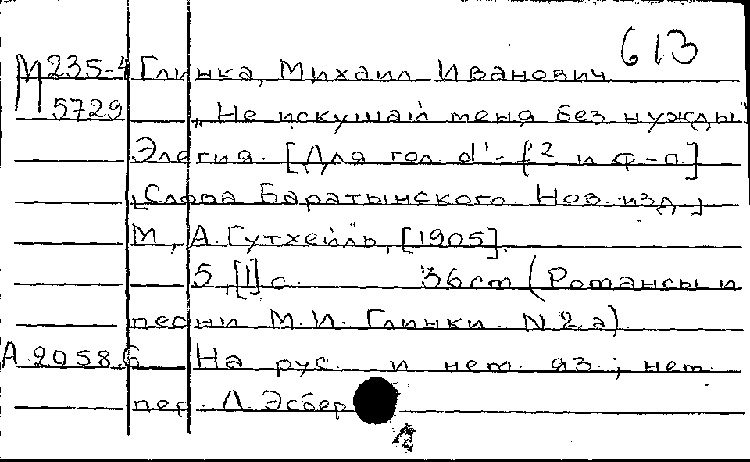 613
М 235-4 Глинка, Михаил Иванович
5729 „Не искушай меня без нужды"
Элегия. [Для гол. d'-f² и ф-п.]
[Слова Баратынского. Нов. изд.]
М., А. Гутхейль, [1905].
5, [1] с. 36 cm (Романсы и
песни М.И. Глинки. N 2 а)
А.2058.6 На рус. и нем. яз.; нем.
пер. Л. Эсбер